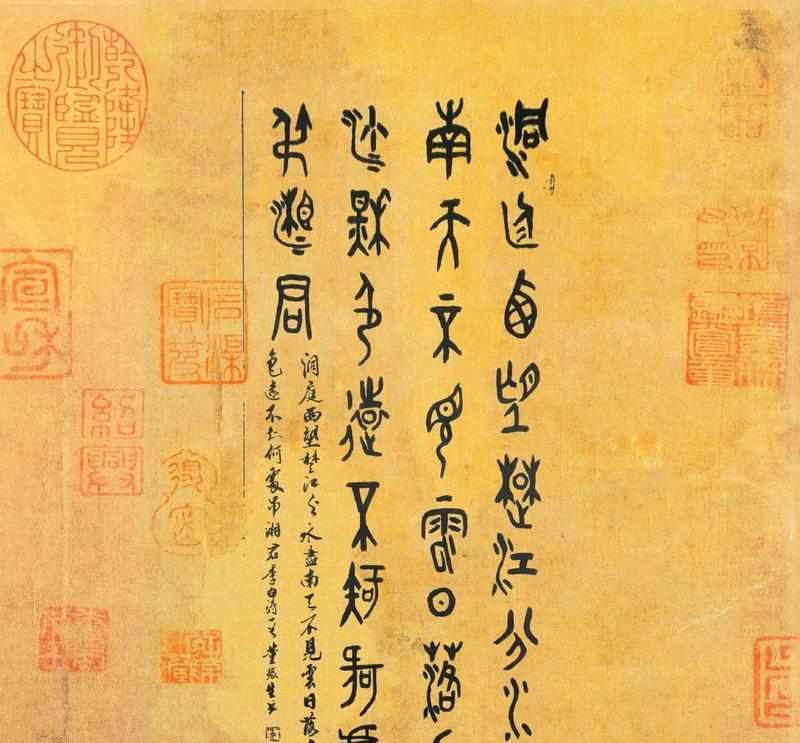 洞庭西望楚江分水
南天不見雲日落
沙秋色遠不知何
吊湘君
洞庭西望楚江分水盡南天不見雲日落
色遠不知何處吊湘君李白詩一首董振生書
乾隆御覽之寶
紹興